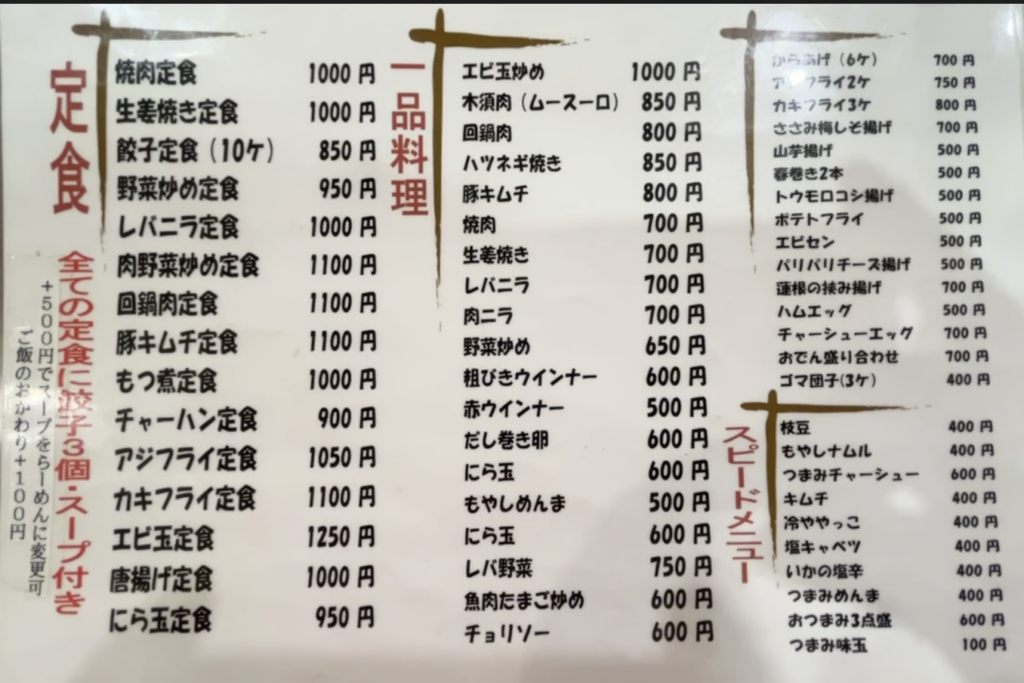 定食
焼肉定食 1000円
生姜焼き定食 1000円
餃子定食（10ケ） 850円
野菜炒め定食 950円
レバニラ定食 1000円
肉野菜炒め定食 1100円
回鍋肉定食 1100円
豚キムチ定食 1100円
もつ煮定食 1000円
チャーハン定食 900円
アジフライ定食 1050円
カキフライ定食 1100円
エビ玉定食 1250円
唐揚げ定食 1000円
にら玉定食 950円
全ての定食に餃子3個・スープ付き
+500円でスープをらーめんに変更可
ご飯のおかわり+100円
一品料理
エビ玉炒め 1000円
木須肉（ムースーロ） 850円
回鍋肉 800円
ハツネギ焼き 850円
豚キムチ 800円
焼肉 700円
生姜焼き 700円
レバニラ 700円
肉ニラ 700円
野菜炒め 650円
粗びきウインナー 600円
赤ウインナー 500円
だし巻き卵 600円
にら玉 600円
もやしめんま 500円
にら玉 600円
レバ野菜 750円
魚肉たまご炒め 600円
チョリソー 600円
からあげ（6ケ） 700円
アジフライ2ケ 750円
カキフライ3ケ 800円
ささみ梅しそ揚げ 700円
山芋揚げ 500円
春巻き2本 500円
トウモロコシ揚げ 500円
ポテトフライ 500円
エビセン 500円
パリパリチーズ揚げ 500円
蓮根の挟み揚げ 700円
ハムエッグ 500円
チャーシューエッグ 700円
おでん盛り合わせ 700円
ゴマ団子(3ケ) 400円
スピードメニュー
枝豆 400円
もやしナムル 400円
つまみチャーシュー 600円
キムチ 400円
冷ややっこ 400円
塩キャベツ 400円
いかの塩辛 400円
つまみめんま 400円
おつまみ3点盛 600円
つまみ味玉 100円